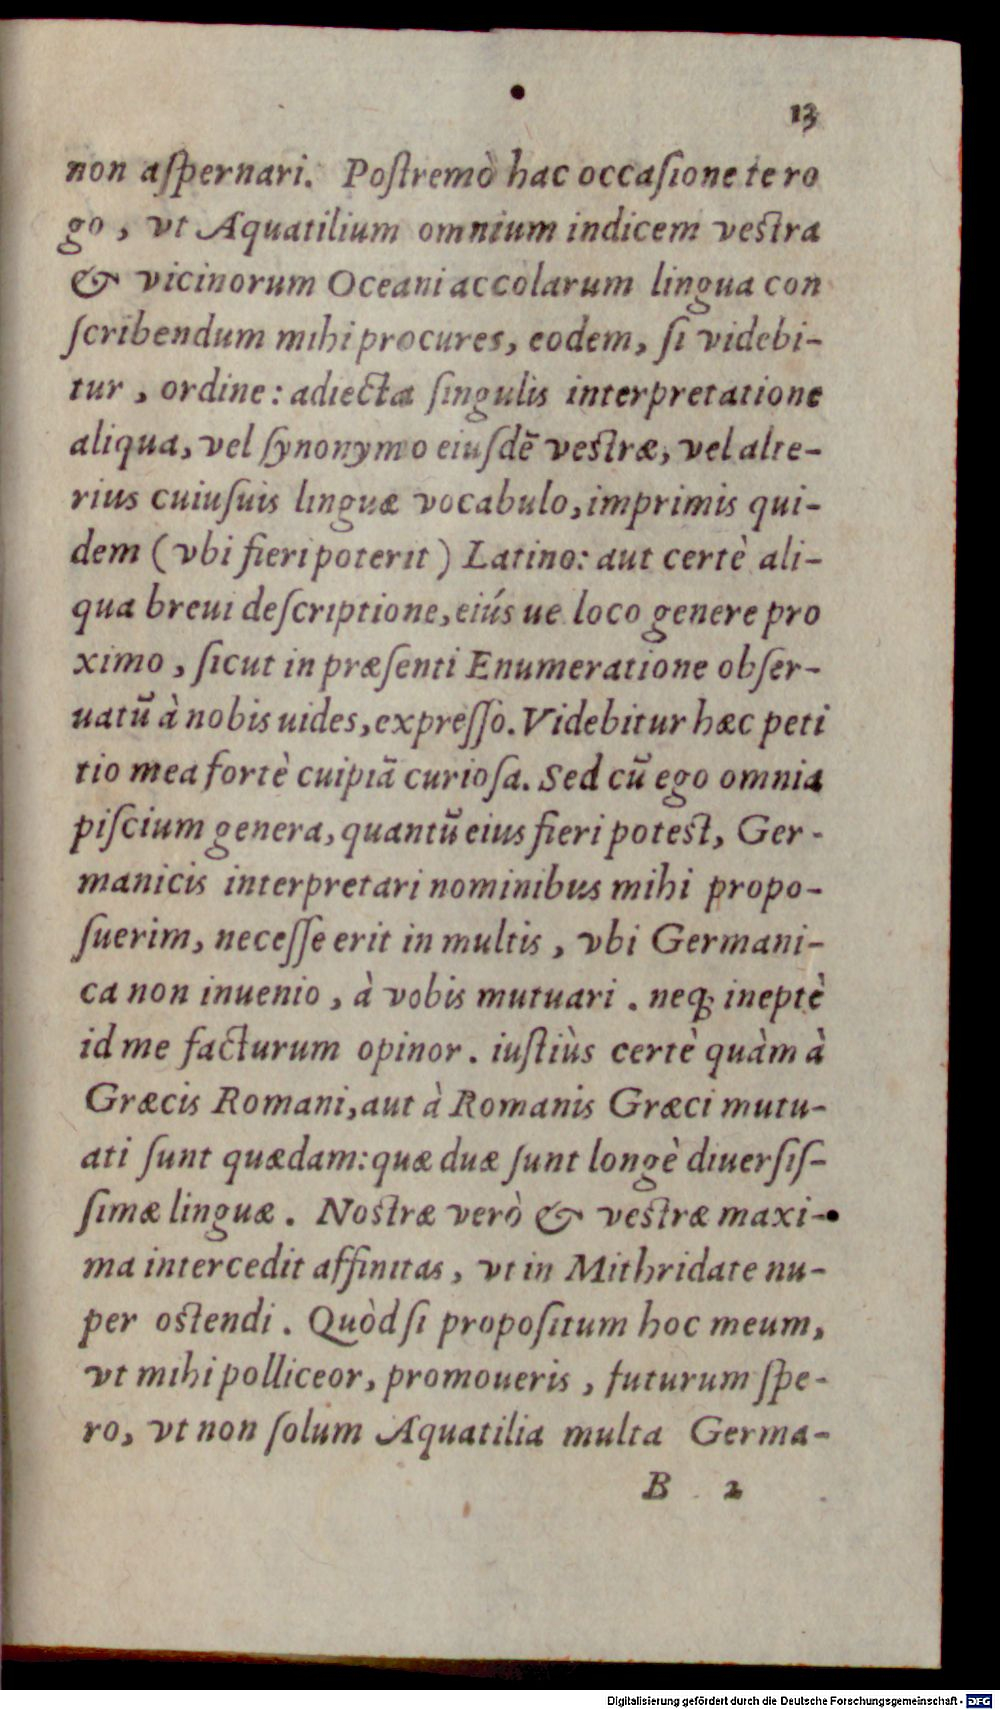 13
non aſpernari. Poſtremò hac occaſione te ro
go, vt Aquatilium omnium indicem veſtra
& vicinorum Oceani accolarum lingua con
ſcribendum mihi procures, eodem, ſi videbi-
tur, ordine: adiecta ſingulis interpretatione
aliqua, vel ſynonymo eiuſdē veſtræ, vel alte-
rius cuiuſuis linguæ vocabulo, imprimis qui-
dem (vbi fieri poterit) Latino: aut certè ali-
qua breui deſcriptione, eiúsue loco genere pro
ximo, ſicut in præſenti Enumeratione obſer-
uatū à nobis uides, expreſſo. Videbitur hæc peti
tio mea fortè cuipiā curioſa. Sed cū ego omnia
piſcium genera, quantū eius fieri poteſt, Ger-
manicis interpretari nominibus mihi propo-
ſuerim, neceſſe erit in multis, vbi Germani-
ca non inuenio, à vobis mutuari. neq; ineptè
id me facturum opinor. iuſtiùs certè quàm à
Græcis Romani, aut à Romanis Græci mutu-
ati ſunt quædam: quæ duæ ſunt longè diuerſiſ-
ſimæ linguæ. Noſtræ verò & veſtræ maxi-
ma intercedit affinitas, vt in Mithridate nu-
per oſtendi. Quòd ſi propoſitum hoc meum,
vt mihi polliceor, promoueris, futurum ſpe-
ro, vt non ſolum Aquatilia multa Germa-
B 2
Digitalisierung gefördert durch die Deutsche Forschungsgemeinschaft - DFG